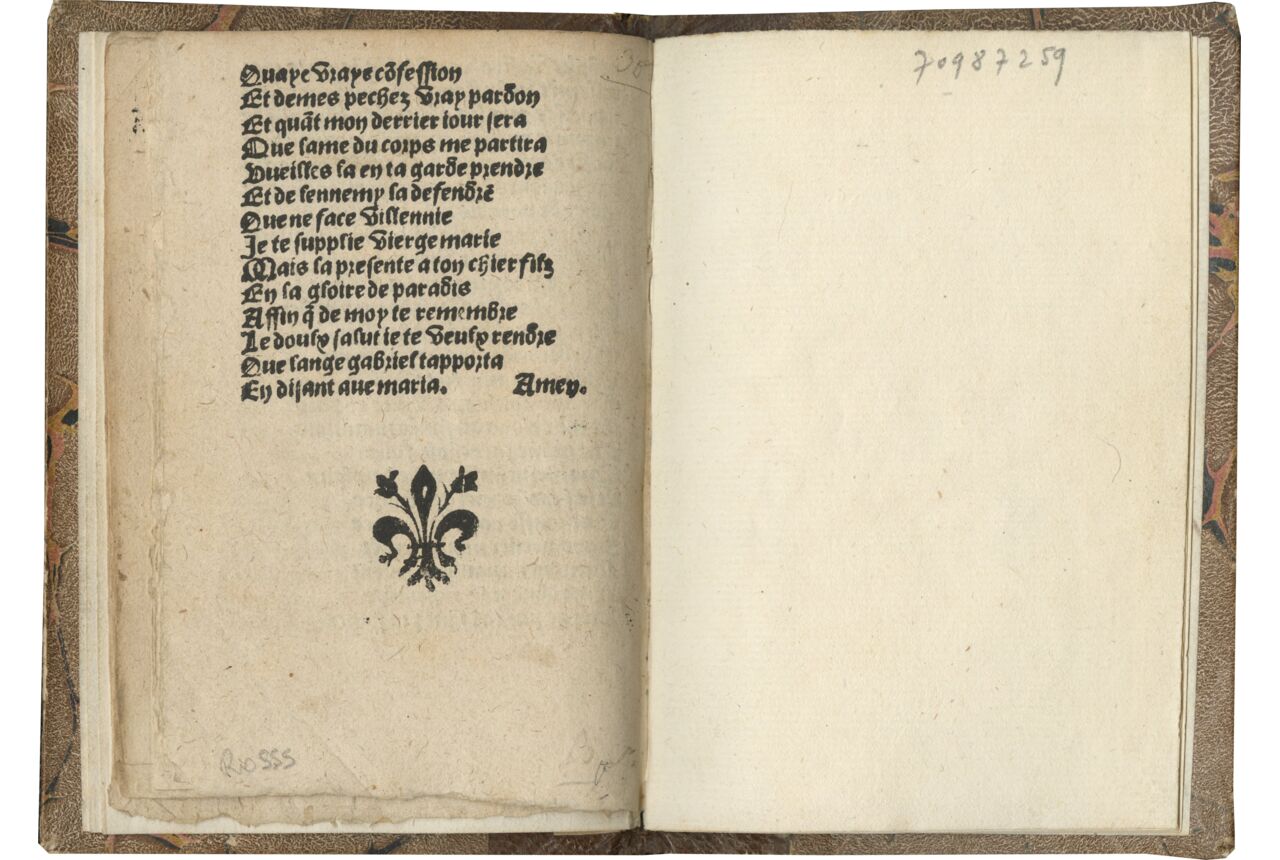 Quaye vraye cõfession
Et demes pechez vray pardon
Et quãt mon derrier iour sera
Que lame du corps me partira
Vueilles la en ta garde prendre
Et de lennemy la defendre
Que ne face villennie
Je te supplie vierge marie
Mais la presente a ton chier filz
En la gloire de paradis
Affin q̃ de moy te remembre
Le doulx salut ie te veulx rendre
Que lange gabriel tapporta
En disant aue maria. Amen.
70987259